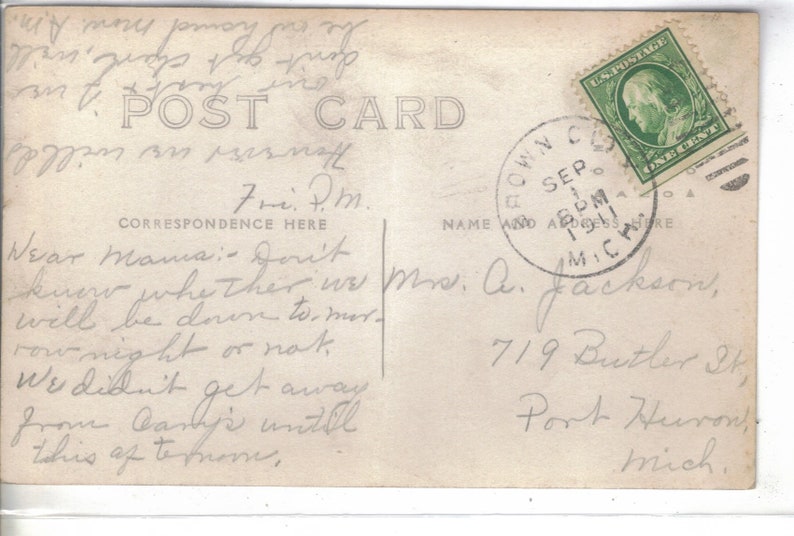 POST CARD
CORRESPONDENCE HERE
NAME AND ADDRESS HERE
U.S. POSTAGE
ONE CENT
BROWN CITY
SEP
1
8 PM
1911
MICH.
Fri. P.M.
Dear Mama:- Don't
know whether we
will be down to-mor-
row night or not.
We didn't get away
from Camp's until
this afternoon.
However we will do
our best & if we
don't get there, will
be in home Mon. A.M.
Mrs. A. Jackson,
719 Butler St,
Port Huron,
Mich.